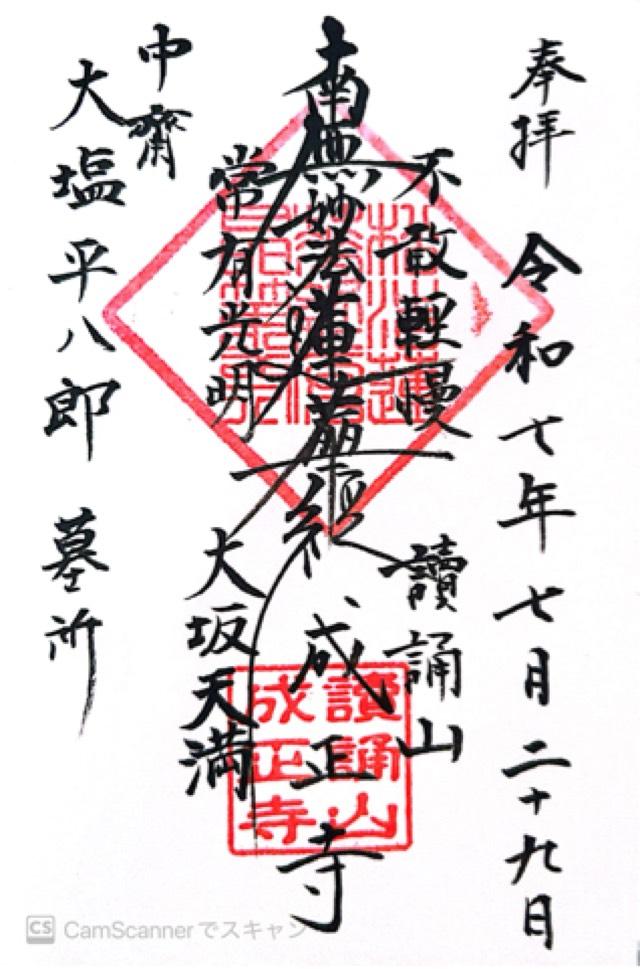 奉拝 令和七年七月二十九日
不敢輕慢
讀誦山
南無妙法蓮華経
成正寺
常有光明
大坂天満
中齋
大塩平八郎 墓所
讀誦山
成正寺
CS CamScannerでスキャン